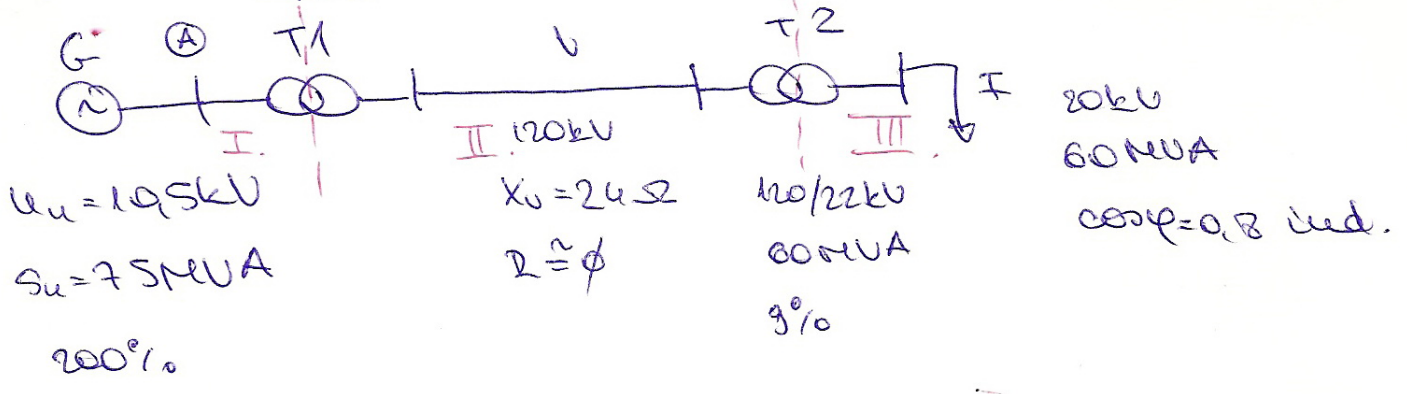 G A T1 V T2
I
I. II. 120kV III.
Un=10,5kV
Sn=75MVA
200%
Xv=24Ω
R≅φ
120/22kV
60MVA
9%
20kV
60MVA
cosφ=0,8 ind.